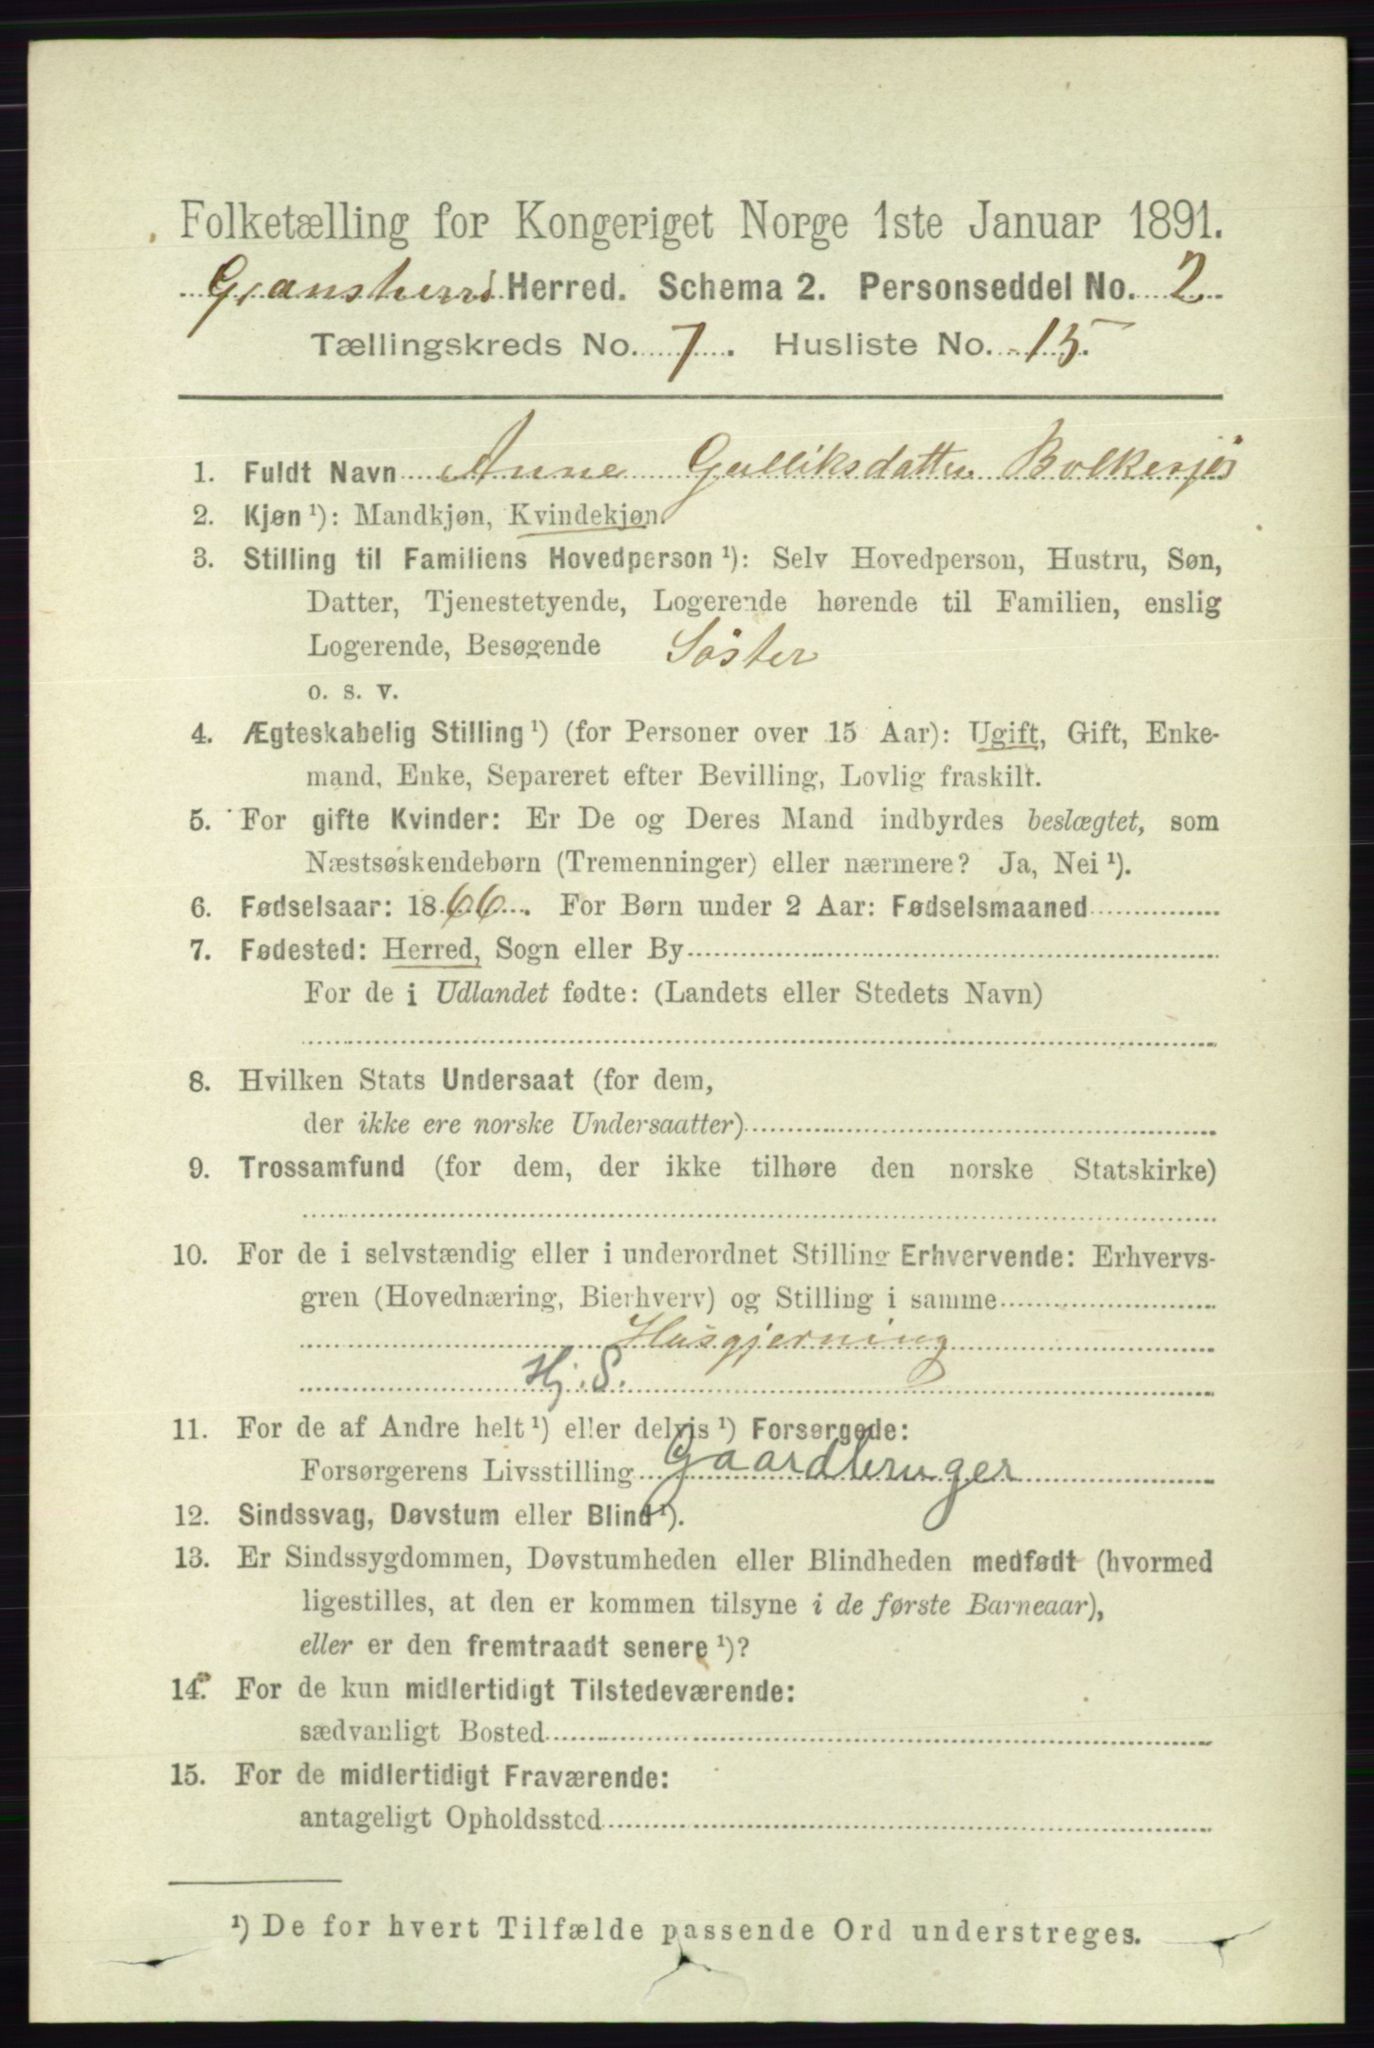 Folketælling for Kongeriget Norge 1ste Januar 1891.
Gransherred Herred. Schema 2. Personseddel No. 2
Tællingskreds No. 7. Husliste No. 15.
1. Fuldt Navn Anne Gulliksdatter Bolkesjø
2. Kjøn ¹): Mandkjøn, Kvindekjøn.
3. Stilling til Familiens Hovedperson ¹): Selv Hovedperson, Hustru, Søn,
Datter, Tjenestetyende, Logerende hørende til Familien, enslig
Logerende, Besøgende Söster
o. s. v.
4. Ægteskabelig Stilling ¹) (for Personer over 15 Aar): Ugift, Gift, Enke-
mand, Enke, Separeret efter Bevilling, Lovlig fraskilt.
5. For gifte Kvinder: Er De og Deres Mand indbyrdes beslægtet, som
Næstsøskendebørn (Tremenninger) eller nærmere? Ja, Nei ¹).
6. Fødselsaar: 1866. For Børn under 2 Aar: Fødselsmaaned
7. Fødested: Herred, Sogn eller By
For de i Udlandet fødte: (Landets eller Stedets Navn)
8. Hvilken Stats Undersaat (for dem,
der ikke ere norske Undersaatter)
9. Trossamfund (for dem, der ikke tilhøre den norske Statskirke)
10. For de i selvstændig eller i underordnet Stilling Erhvervende: Erhvervs-
gren (Hovednæring, Bierhverv) og Stilling i samme
Husgjerning
Hj. S.
11. For de af Andre helt ¹) eller delvis ¹) Forsørgede:
Forsørgerens Livsstilling Gaardbruger
12. Sindssvag, Døvstum eller Blind ¹).
13. Er Sindssygdommen, Døvstumheden eller Blindheden medfødt (hvormed
ligestilles, at den er kommen tilsyne i de første Barneaar),
eller er den fremtraadt senere ¹)?
14. For de kun midlertidigt Tilstedeværende:
sædvanligt Bosted
15. For de midlertidigt Fraværende:
antageligt Opholdssted
¹) De for hvert Tilfælde passende Ord understreges.